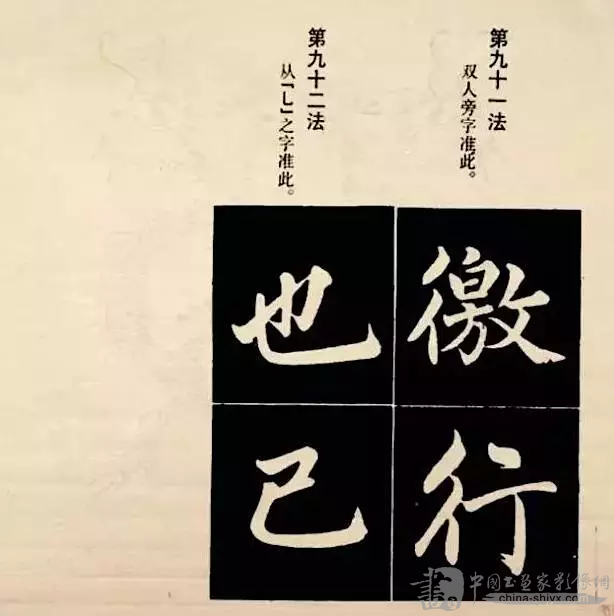 第九十一法
双人旁字准此。
徼
行
第九十二法
从「乚」之字准此。
也
已
中國书画家影像網
china-shiyx.com